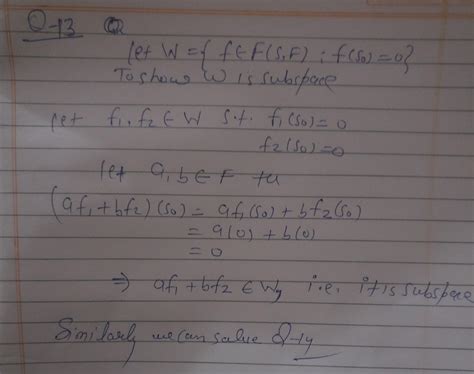 Q-13
Let W = { f ∈ F(S,F) : f(s₀) = 0}
To show W is subspace
let f₁, f₂ ∈ W s.t. f₁(s₀) = 0
f₂(s₀) = 0
let a, b ∈ F
(af₁ + bf₂)(s₀) = af₁(s₀) + bf₂(s₀)
= a(0) + b(0)
= 0
⇒ af₁ + bf₂ ∈ W, i.e. it is subspace
Similarly we can solve Q-14